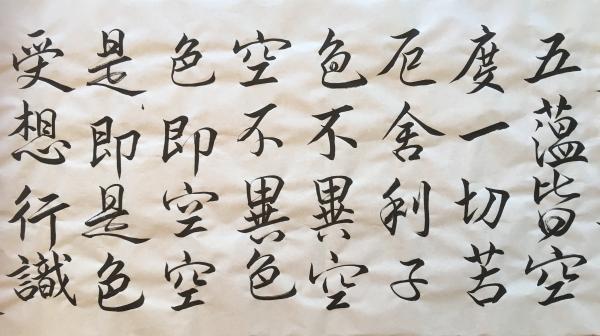 五薀皆空
度一切苦
厄舍利子
色不異空
空不異色
色即空空
是即是色
受想行識